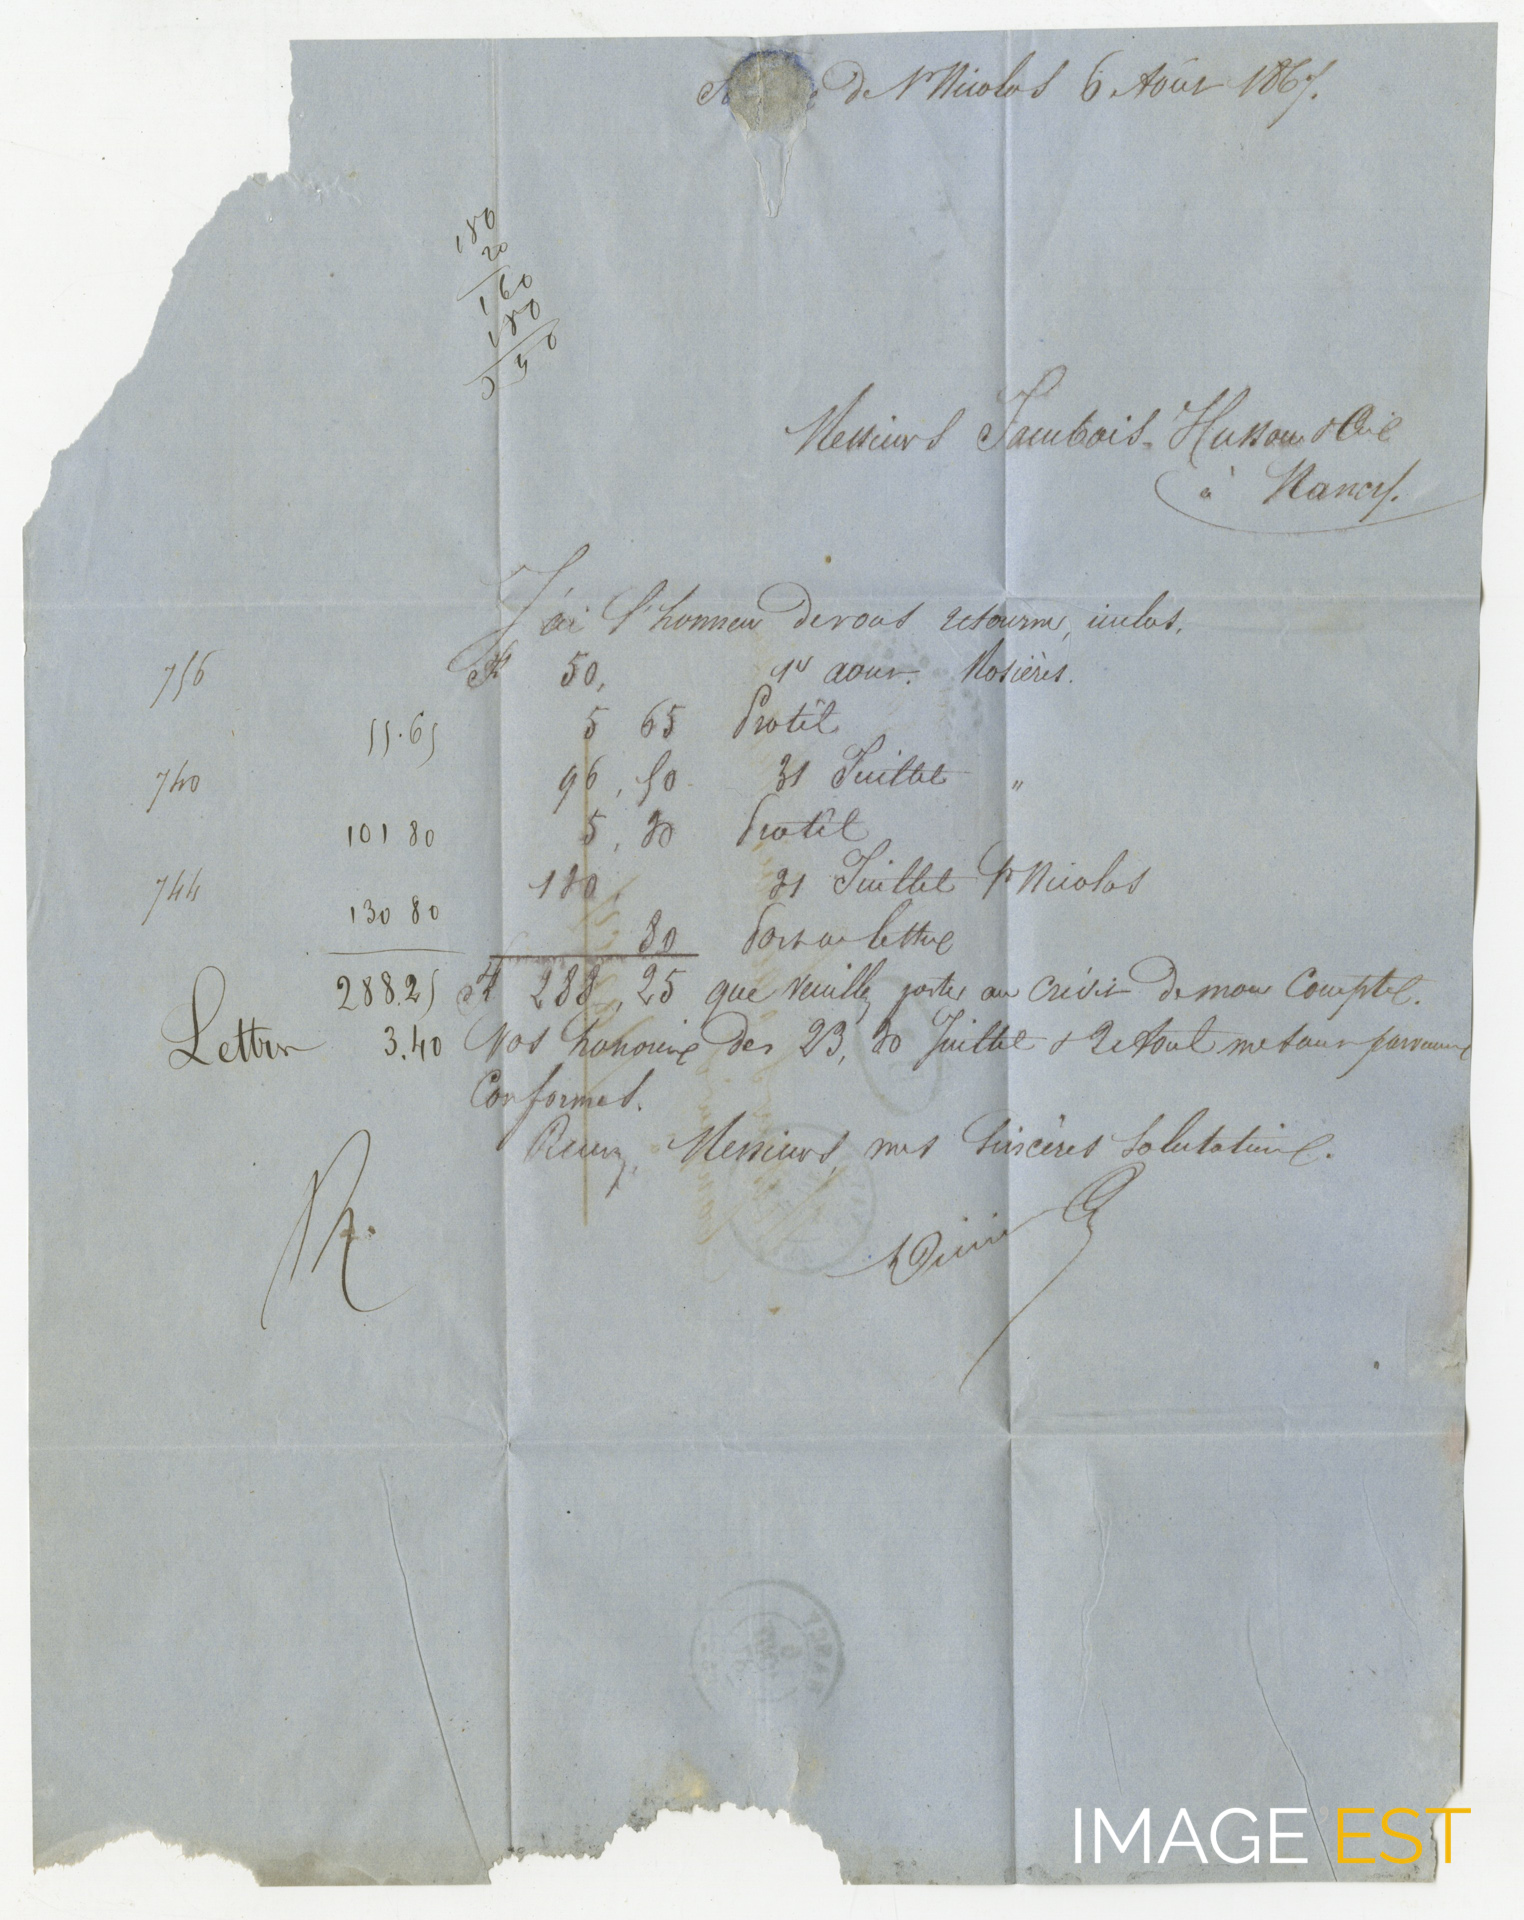 de St Nicolas 6 Août 1867.
180
20
160
180
Messieurs Jambois Husson & Cie
à Nancy.
J'ai l'honneur de vous retourner, inclus.
756 50, 1er aout. Rosières.
55.65 5 65 Protêt
740 96, 50 31 Juillet "
101 80 5, 30 Protêt
744 130. 31 Juillet St Nicolas
130 80 80 Port de lettre
288.25 288, 25 que veuillez porter au crédit de mon Compte.
Lettres 3.40 Vos honorées des 23, 30 Juillet & 2 Aout me sont parvenues
Conformes.
Recevez, Messieurs, mes Sincères Salutations.
IMAGE EST